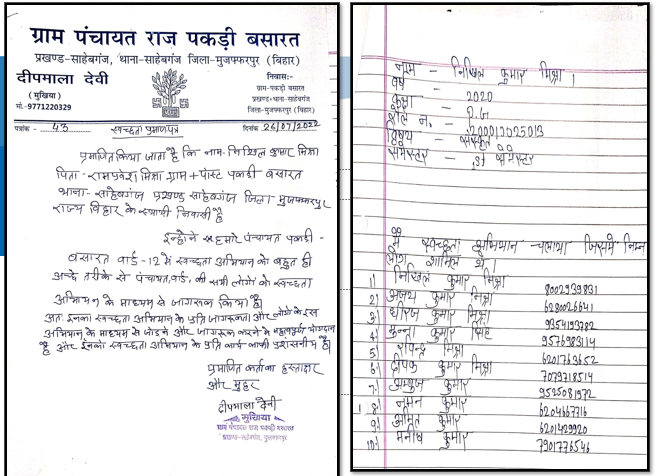 ग्राम पंचायत राज पकड़ी बसारत
प्रखण्ड-साहेबगंज, थाना-साहेबगंज जिला-मुजफ्फरपुर (बिहार)
दीपमाला देवी
(मुखिया)
मो.-9771220329
निवास:-
ग्राम-पकड़ी बसारत
प्रखण्ड+थाना-साहेबगंज
जिला-मुजफ्फरपुर (बिहार)
पत्रांक - 43 स्वच्छता प्रमाणपत्र दिनांक 26/07/2022
प्रमाणित किया जाता है कि नाम-निखिल कुमार मिश्रा
पिता - रामप्रवेश मिश्रा ग्राम + पोस्ट पकड़ी बसारत
थाना- साहेबगंज प्रखण्ड साहेबगंज जिला- मुजफ्फरपुर
राज्य बिहार के स्थायी निवासी है
इन्होंने हमारे पंचायत पकड़ी -
बसारत वार्ड -12 में स्वच्छता अभियान को बहुत ही
अच्छे तरीके से पंचायत, वार्ड, की सभी लोगों को स्वच्छता
अभियान के माध्यम से जागरूक किया है।
अतः इनका स्वच्छता अभियान के प्रति जागरूकता और लोगों के इस
अभियान के माध्यम से जोड़ने और जागरूक करने के महत्वपूर्ण योगदान
है और इनका स्वच्छता अभियान के प्रति कार्य काफी प्रशंसनीय है।
प्रमाणित कर्ता का हस्ताक्षर
और मुहर
दीपमाला देवी
मुखिया
ग्राम पंचायत राज पकड़ी बसारत
प्रखण्ड-साहेबगंज, मुजफ्फरपुर
नाम - निखिल कुमार मिश्रा।
वर्ष - 2020
कक्षा - P.G
रौल न. - 200012025013
विषय - संस्कृत
समेस्टर - सेमेस्टर
में स्वच्छता अभियान चलाया जिसमें निम्न
लोग शामिल थे।
1) निखिल कुमार मिश्रा 8002939831
2) अजय कुमार मिश्रा 6280026641
3) धीरज कुमार मिश्रा 9354193782
4) मुन्ना कुमार सिंह 9576983114
5) मिश्रा 6201763652
6) दीपक कुमार मिश्रा 7079718514
7) कुमार 9525081972
8) नमन कुमार 6204667716
9) अमित कुमार 6201429920
10) मनीष कुमार 7901776546